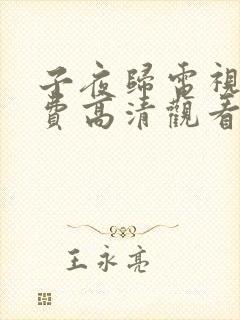 子夜歸電視
費高清觀看
王永亮